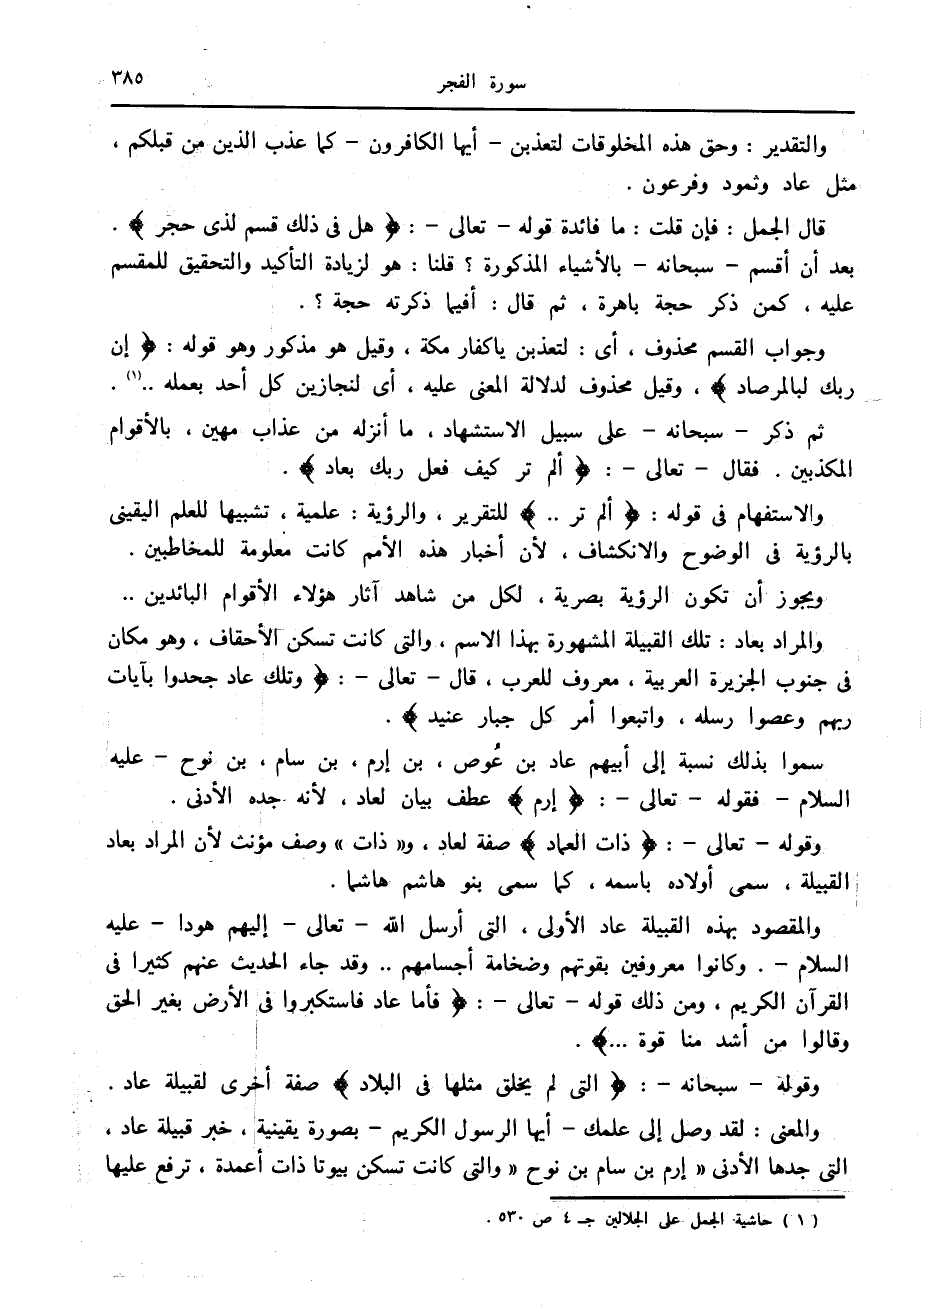 سورة الفجر ٣٨٥
والتقدير : وحق هذه المخلوقات لتعذبن – أيها الكافرون – كما عذب الذين من قبلكم ،
مثل عاد وثمود وفرعون .
قال الجمل : فإن قلت : ما فائدة قوله – تعالى – : ﴿ هل فى ذلك قسم لذى حجر ﴾ .
بعد أن أقسم – سبحانه – بالأشياء المذكورة ؟ قلنا : هو لزيادة التأكيد والتحقيق للمقسم
عليه ، كمن ذكر حجة باهرة ، ثم قال : أفيما ذكرته حجة ؟ .
وجواب القسم محذوف ، أى : لتعذبن ياكفار مكة ، وقيل هو مذكور وهو قوله : ﴿ إن
ربك لبالمرصاد ﴾ ، وقيل محذوف لدلالة المعنى عليه ، أى لنجازين كل أحد بعمله ..(١) .
ثم ذكر – سبحانه – على سبيل الاستشهاد ، ما أنزله من عذاب مهين ، بالأقوام
المكذبين . فقال – تعالى – : ﴿ ألم تر كيف فعل ربك بعاد ﴾ .
والاستفهام فى قوله : ﴿ ألم تر .. ﴾ للتقرير ، والرؤية : علمية ، تشبيها للعلم اليقينى
بالرؤية فى الوضوح والانكشاف ، لأن أخبار هذه الأمم كانت معلومة للمخاطبين .
ويجوز أن تكون الرؤية بصرية ، لكل من شاهد آثار هؤلاء الأقوام البائدين ..
والمراد بعاد : تلك القبيلة المشهورة بهذا الاسم ، والتى كانت تسكن الأحقاف ، وهو مكان
فى جنوب الجزيرة العربية ، معروف للعرب ، قال – تعالى – : ﴿ وتلك عاد جحدوا بآيات
ربهم وعصوا رسله ، واتبعوا أمر كل جبار عنيد ﴾ .
سموا بذلك نسبة إلى أبيهم عاد بن عُوص ، بن إرم ، بن سام ، بن نوح – عليه
السلام – فقوله – تعالى – : ﴿ إرم ﴾ عطف بيان لعاد ، لأنه جده الأدنى .
وقوله – تعالى – : ﴿ ذات العماد ﴾ صفة لعاد ، و« ذات » وصف مؤنث لأن المراد بعاد
القبيلة ، سمى أولاده باسمه ، كما سمى بنو هاشم هاشما .
والمقصود بهذه القبيلة عاد الأولى ، التى أرسل الله – تعالى – إليهم هودا – عليه
السلام – . وكانوا معروفين بقوتهم وضخامة أجسامهم .. وقد جاء الحديث عنهم كثيرا فى
القرآن الكريم ، ومن ذلك قوله – تعالى – : ﴿ فأما عاد فاستكبروا فى الأرض بغير الحق
وقالوا من أشد منا قوة ...﴾ .
وقوله – سبحانه – : ﴿ التى لم يخلق مثلها فى البلاد ﴾ صفة أخرى لقبيلة عاد .
والمعنى : لقد وصل إلى علمك – أيها الرسول الكريم – بصورة يقينية ، خبر قبيلة عاد ،
التى جدها الأدنى « إرم بن سام بن نوح « والتى كانت تسكن بيوتا ذات أعمدة ، ترفع عليها
( ١ ) حاشية الجمل على الجلالين جـ ٤ ص ٥٣٠ .